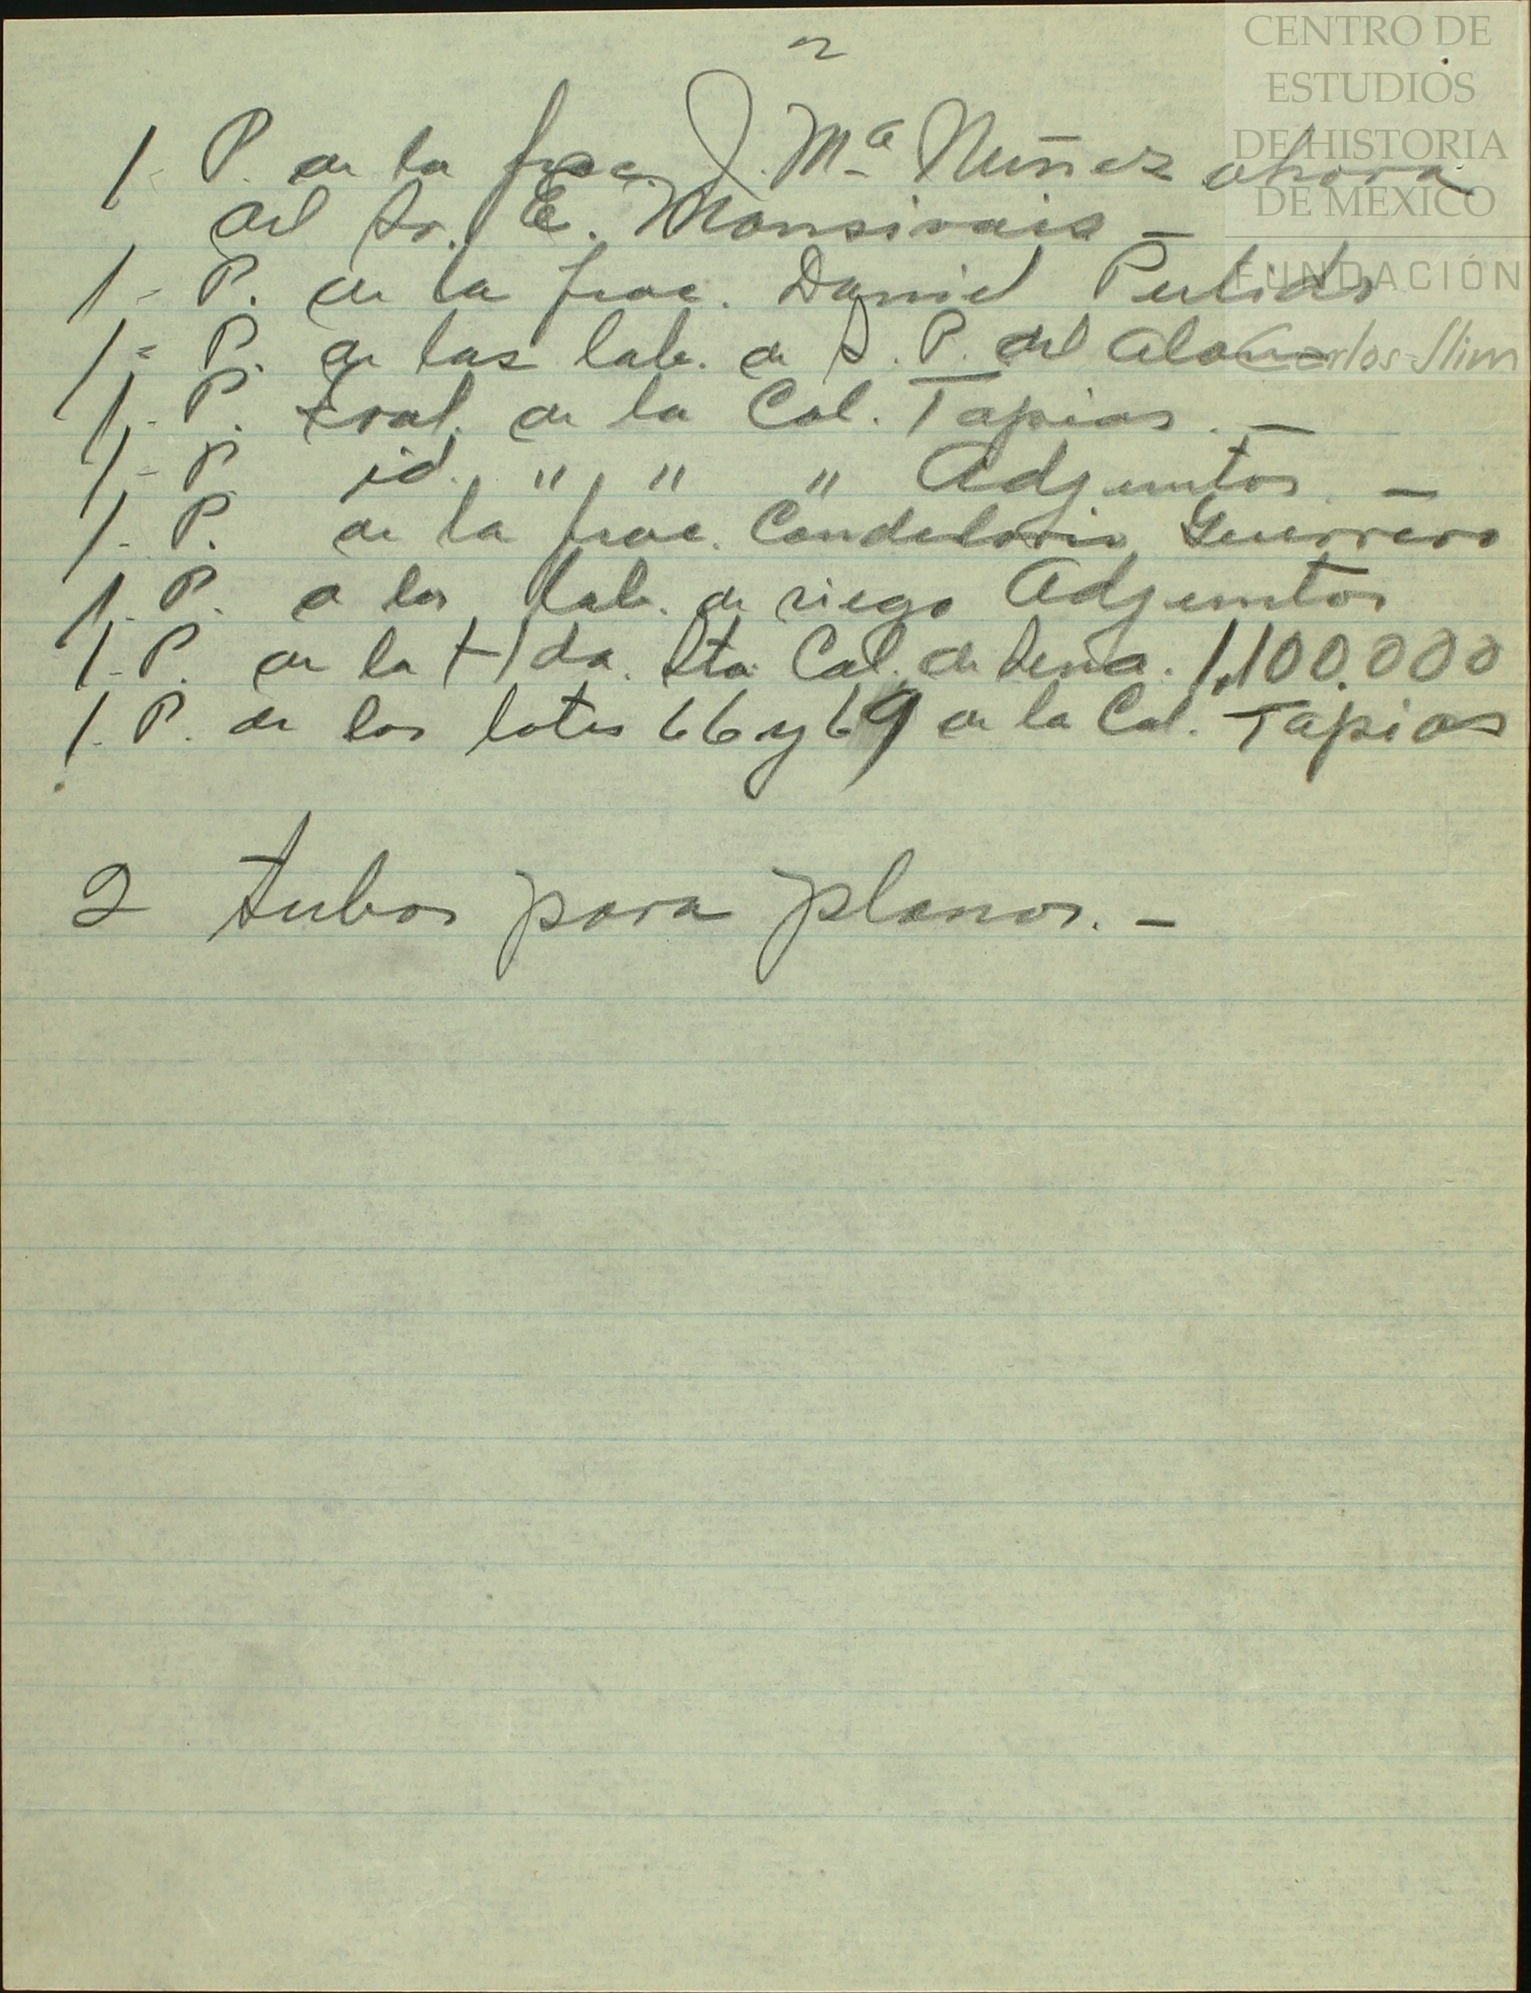 2
CENTRO DE
ESTUDIOS
DE HISTORIA
DE MEXICO
FUNDACIÓN
Carlos Slim
1- P. de la frac. J. Mª Nuñez ahora
del Sr. E. Monsivais -
1- P. de la frac. Daniel Pulido
1- P. de las lab. de S. P. del
1- P. Gral. de la Col. Tapias. -
1- P. id. " " " Adjuntos. -
1- P. de la frac. Candelario Guerrero
1. P. a las lab. de riego Adjuntos
1- P. de la Hda. Sta. Cat. de 1,100.000
1. P. de los lotes 66 y 69 de la Col. Tapias
2 tubos para planos. -